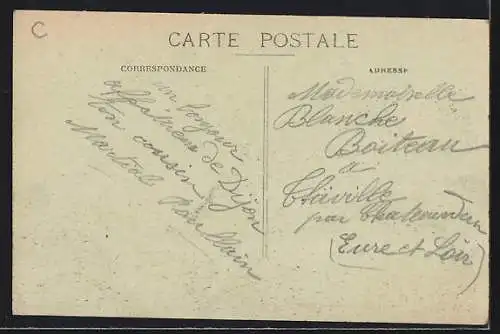 C
CARTE POSTALE
CORRESPONDANCE
un bonjour
affectueux de Dijon
ton cousin
Martial
ADRESSE
Mademoiselle
Blanche
Boiteau
à
par Chateaudun
(Eure et Loir)